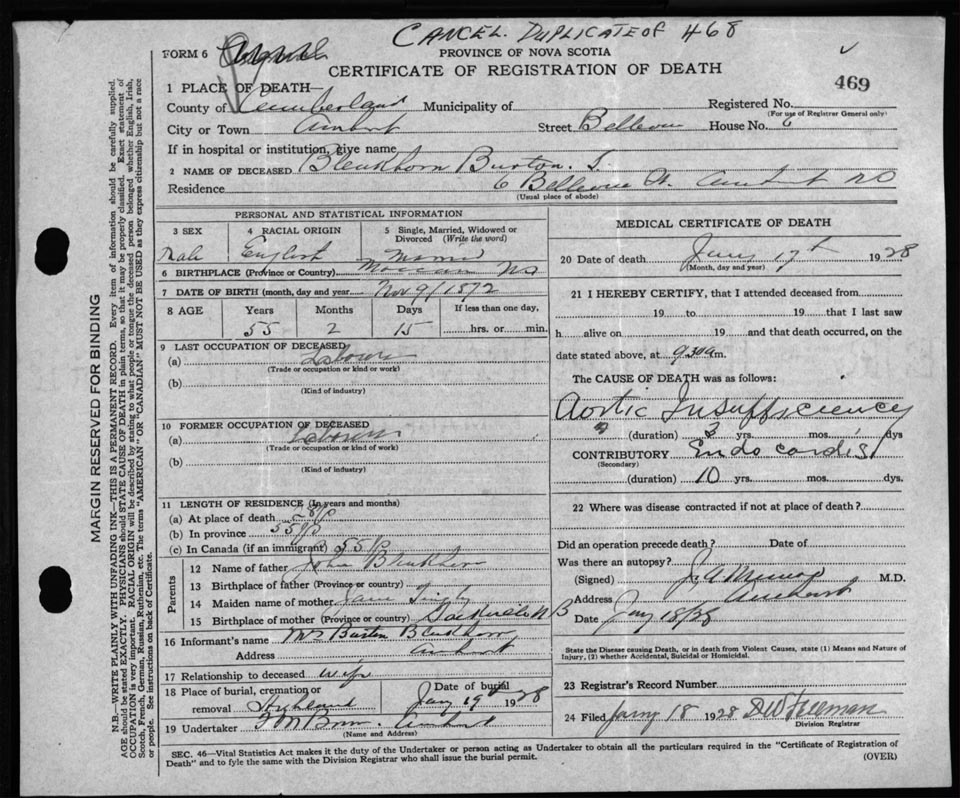 CANCEL. DUPLICATE OF 468
FORM 6
PROVINCE OF NOVA SCOTIA
CERTIFICATE OF REGISTRATION OF DEATH
469
1 PLACE OF DEATH—
County of Cumberland Municipality of
Registered No.
(For use of Registrar General only)
City or Town Amherst Street Bellevue House No. 6
If in hospital or institution, give name
2 NAME OF DECEASED Blenkhorn Burton. S.
Residence 6 Bellevue St. Amherst NS
(Usual place of abode)
PERSONAL AND STATISTICAL INFORMATION
3 SEX
Male
4 RACIAL ORIGIN
English
5 Single, Married, Widowed or Divorced (Write the word)
Married
6 BIRTHPLACE (Province or Country) Maccan NS
7 DATE OF BIRTH (month, day and year) Nov 9/1872
8 AGE Years Months Days If less than one day,
55 2 15 hrs. or min.
9 LAST OCCUPATION OF DECEASED
(a) Laborer
(Trade or occupation or kind or work)
(b)
(Kind of industry)
10 FORMER OCCUPATION OF DECEASED
(a) Laborer
(Trade or occupation or kind of work)
(b)
(Kind of industry)
11 LENGTH OF RESIDENCE (In years and months)
(a) At place of death
(b) In province 55 yrs
(c) In Canada (if an immigrant) 55 yrs
Parents
12 Name of father John Blenkhorn
13 Birthplace of father (Province or country)
14 Maiden name of mother Jane
15 Birthplace of mother (Province or country) Sackville N B
16 Informant's name Mrs Burton Blenkhorn
Address Amherst
17 Relationship to deceased wife
18 Place of burial, cremation or removal Highland
Date of burial Jany 19th 1928
19 Undertaker Amherst
(Name and Address)
MEDICAL CERTIFICATE OF DEATH
20 Date of death Jany 17th 1928
(Month, day and year)
21 I HEREBY CERTIFY, that I attended deceased from
19 to 19 that I last saw
h alive on 19 and that death occurred, on the
date stated above, at 9 30 a m.
The CAUSE OF DEATH was as follows:
Aortic Insufficiency
(duration) 3 yrs. mos. dys
CONTRIBUTORY Endocarditis
(Secondary)
(duration) 10 yrs. mos. dys.
22 Where was disease contracted if not at place of death?
Did an operation precede death? Date of
Was there an autopsy?
(Signed) J. A. Munro M.D.
Address Amherst
Date Jany 18/28
State the Disease causing Death, or in death from Violent Causes, state (1) Means and Nature of
Injury, (2) whether Accidental, Suicidal or Homicidal.
23 Registrar's Record Number
24 Filed Jany 18 1928
Division Registrar
SEC. 46—Vital Statistics Act makes it the duty of the Undertaker or person acting as Undertaker to obtain all the particulars required in the "Certificate of Registration of
Death" and to fyle the same with the Division Registrar who shall issue the burial permit.
(OVER)
MARGIN RESERVED FOR BINDING
N.B.—WRITE PLAINLY WITH UNFADING INK—THIS IS A PERMANENT RECORD. Every item of information should be carefully supplied.
AGE should be stated EXACTLY. PHYSICIANS should STATE CAUSE OF DEATH in plain terms, so that it may be properly classified. Exact statement of
OCCUPATION is very important. RACIAL ORIGIN will be described by stating to what people or tongue the deceased person belonged whether English, Irish,
Scotch, French, German, Russian, Ruthenian, etc. The terms "AMERICAN" OR "CANADIAN" MUST NOT BE USED as they express citizenship but not a race
or people. See instructions on back of Certificate.